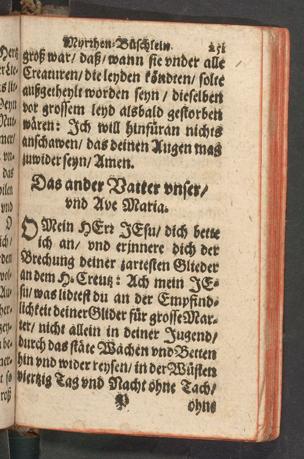 Myrthen-Büschlein. 251
groß war/ daß/ wann sie vnder alle
Creaturen/ die leyden köndten/ solte
außgetheylt worden seyn/ dieselben
vor grossem leyd alsbald gestorben
wären: Ich will hinfüran nichts
anschawen/ das deinen Augen mag
zuwider seyn/ Amen.
Das ander Vatter vnser/
vnd Ave Maria.
O Mein HErr JEsu/ dich bette
ich an/ vnd erinnere dich der
Brechung deiner zartesten Glieder
an dem H. Creutz: Ach mein JE-
su/ was lidtest du an der Empfind-
lichkeit deiner Glider für grosse Mar-
ter/ nicht allein in deiner Jugend/
durch das stäte Wachen vnd Betten
hin vnd wider reysen/ in der Wüsten
viertzig Tag vnd Nacht ohne Tach/
ohne